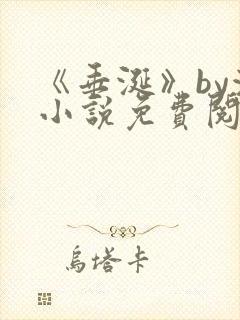 《垂涎》by
小說免費閱
烏塔卡